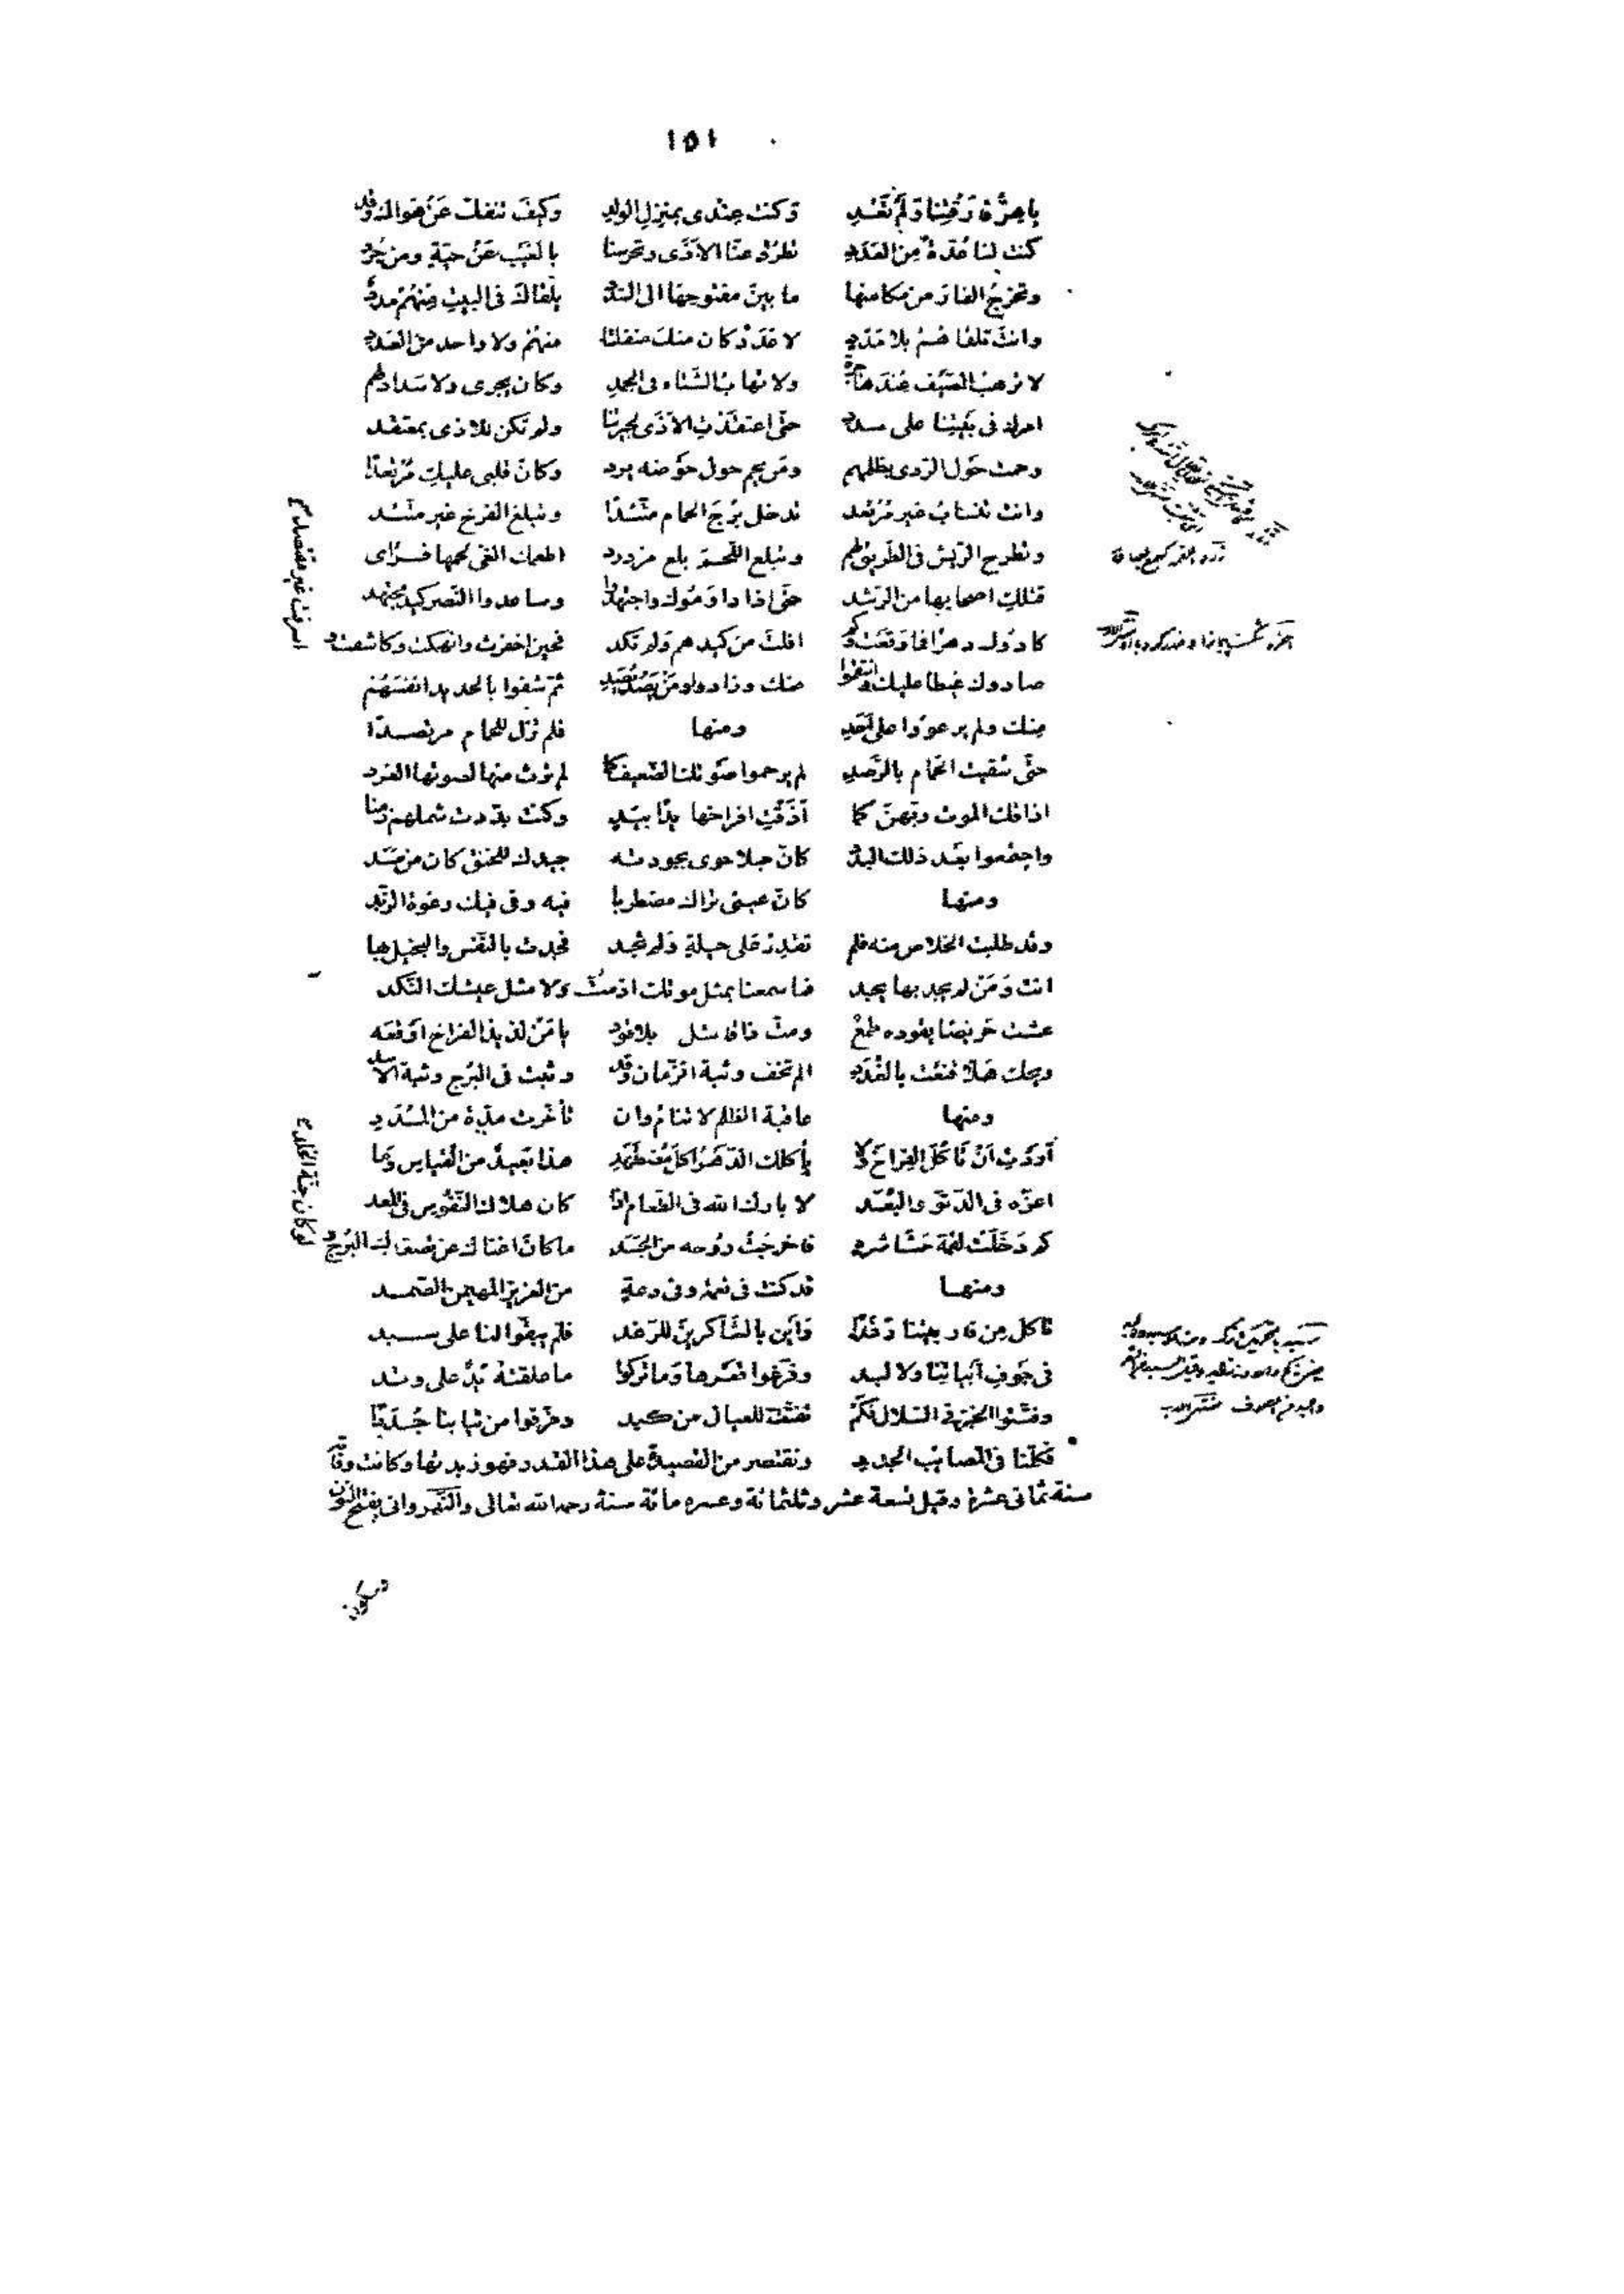 ١٥١
يا هرّ فارقتنا ولم تعد وكنت عندى بمنزل الولد وكيف ننفك عن هواك وقد
كنت لنا عدة من العدد تطرد عنّا الاذى وتحرسنا بالغيب عن حية ومن جرد
وتخرج الفار من مكامنها ما بين مفتوحها الى السدد يلقاك فى البيت منهم مدد
وانت تلقاهم بلا مدد لا عدد كان منك منفلتا منهم ولا واحد من العدد
لا ترهب الصيف عند هاجرة ولا تهاب الشتاء فى الجمد وكان يجرى ولا سداد لهم
امرك فى بيتنا على سدد حتّى اعتقدت الاذى لجيرتنا ولم تكن للاذى بمعتقد
وحمت حول الردى بظلمهم ومن يحم حول حوضه يرد وكان قلبى عليك مرتعدا
وانت تنساب غير مرتعد تدخل برج الحمام متّئدا وتبلع الفرخ غير متّئد
وتطرح الريش فى الطريق لهم وتبلع اللحم بلع مزدرد اطعمك الغى لحمها فراى
قتلك اصحابها من الرشد حتّى اذا داوموك واجتهدوا وساعدوا النصر كيد مجتهد
كادوك دهرا فما وقعت وكم افلت من كيدهم ولم تكد فحين اخفرت وانهمكت وكاشفت و
اسرفت غير مقتصد
صادوك غيظا عليك وانتقموا منك وزادوا ومن يصد يصد ثمّ شفوا بالحديد انفسهم
منك ولم يرعووا على احد ومنها فلم تزل للحمام مرتصدا
حتّى سقيت الحمام بالرصد لم يرحموا صوتك الضعيف كما لم ترث منها لصوتها الغرد
اذاقك الموت ربهن كما اذقت افراخها يدا بيد وكنت بدّدت شملهم زمنا
واجتمعوا بعد ذلك البدد كان حبلا حوى بجودته جيدك للخنق كان من مسد
ومنها كان عينى تراك مضطربا فيه وفى فيك رغوة الزبد
وقد طلبت الخلاص منه فلم تقدر على حيلة ولم تجد فجدت بالنفس والبخيل بها
انت ومن لم يجد بها يجد فما سمعنا بمثل موتك اذ مت ولا مثل عيشك النكد
عشت حريصا يقوده طمع ومت ذا قاتل بلا قود يا من لذيذ الفراخ اوقعه
ويحك هلا قنعت بالغدد الم تخف وثبة الزمان وقد وثبت فى البرج وثبة الاسد
ومنها عاقبة الظلم لا تنام وان تأخرت مدّة من المدد
اردت ان تأكل الفراخ ولا يأكلك الدهر اكل مضطهد هذا بعيد من القياس وما
اعزه فى الدنو والبعد لا بارك الله فى الطعام اذا كان هلاك النفوس فى المعد
كم دخلت لقمة حشا شره فاخرجت روحه من الجسد ما كان اغناك عن تصعدك البرج و
لو كان جنّة الخلد
ومنها قد كنت فى نعمة وفى دعة من العزيز المهيمن الصمد
تأكل من فار بيتنا رغدا واين بالشاكرين للرغد فلم يبقّوا لنا على سبد
فى جوف ابياتنا ولا لبد وفرّغوا قعرها وما تركوا ما علقته يد على وتد
وفتّتوا الخبز فى السلال فكم تفتّتت للعيال من كبد ومزّقوا من ثيابنا جددا
فكلنا فى المصايب الجدد ونقتصر من القصيدة على هذا القدر فهو زبدتها وكانت وفاته
سنة ثمانى عشرة وقيل تسعة عشر وثلثمائة وعمره مائة سنة رحمه الله تعالى والنهروانى بفتح النون